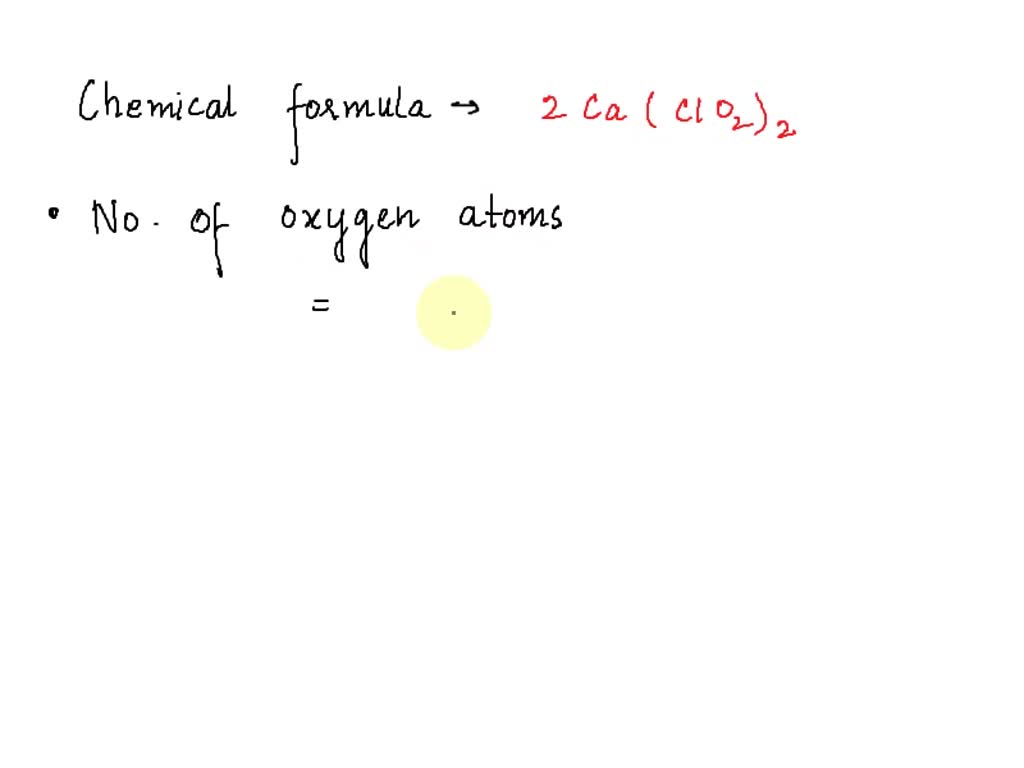 Chemical formula → 2 Ca ( ClO₂)₂
• No. of oxygen atoms
=